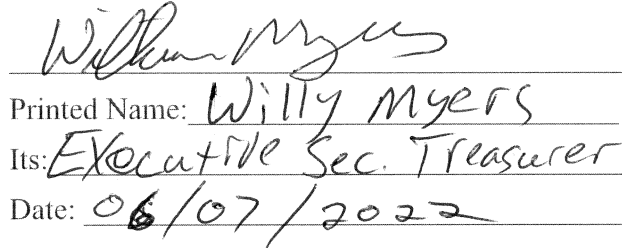 William Myers
Printed Name: Willy Myers
Its: Executive Sec. Treasurer
Date: 06/07/2022